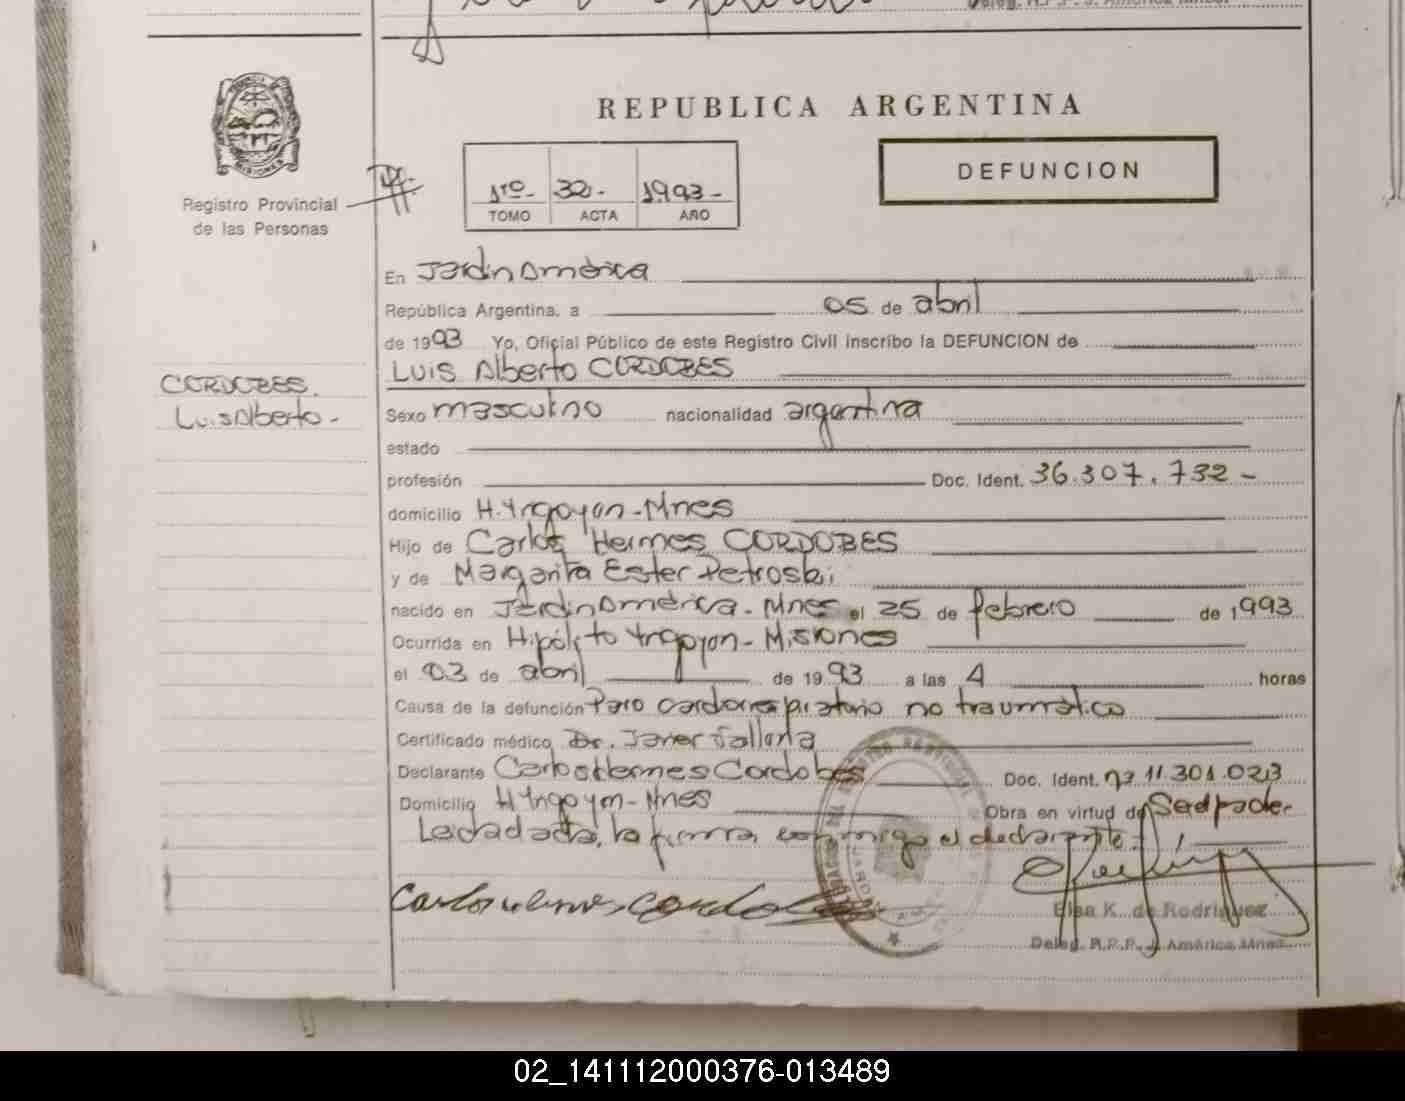 REPUBLICA ARGENTINA
DEFUNCION
1ro- 32.- 1993-
TOMO ACTA AÑO
Registro Provincial
de las Personas
En Jardin América
República Argentina, a 05 de abril
de 1993 Yo, Oficial Público de este Registro Civil inscribo la DEFUNCION de
Luis Alberto CORDOBES
CORDOBES.
Luis Alberto-
Sexo masculino nacionalidad argentina
estado
profesión Doc. Ident. 36.307.732-
domicilio H. Yrigoyen-Mnes
Hijo de Carlos Hermes CORDOBES
y de Margarita Ester Petroski
nacido en Jardin América-Mnes el 25 de febrero de 1993
Ocurrida en Hipólito Yrigoyen-Misiones
el 03 de abril de 1993 a las 4 horas
Causa de la defunción Paro cardiorrespiratorio no traumático
Certificado médico Dr. Javier
Declarante Carlos Hermes Cordobes Doc. Ident. 11.301.023
Domicilio H Yrigoyen-Mnes Obra en virtud de Ser el padre.
Leida el acta, la firma conmigo el declarante.
Carlos Hermes Cordobes
Elsa K. de Rodriguez
Deleg. R.P.P. J. América Mnes.
02_141112000376-013489